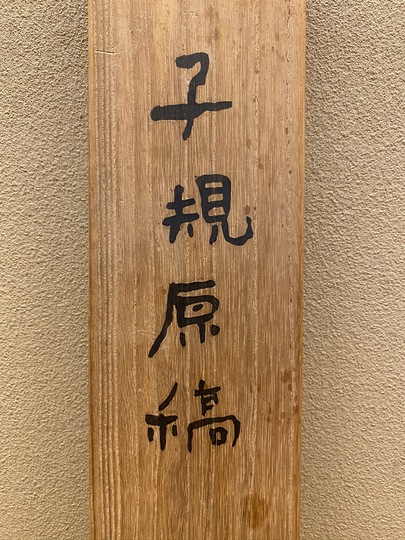 子規原稿